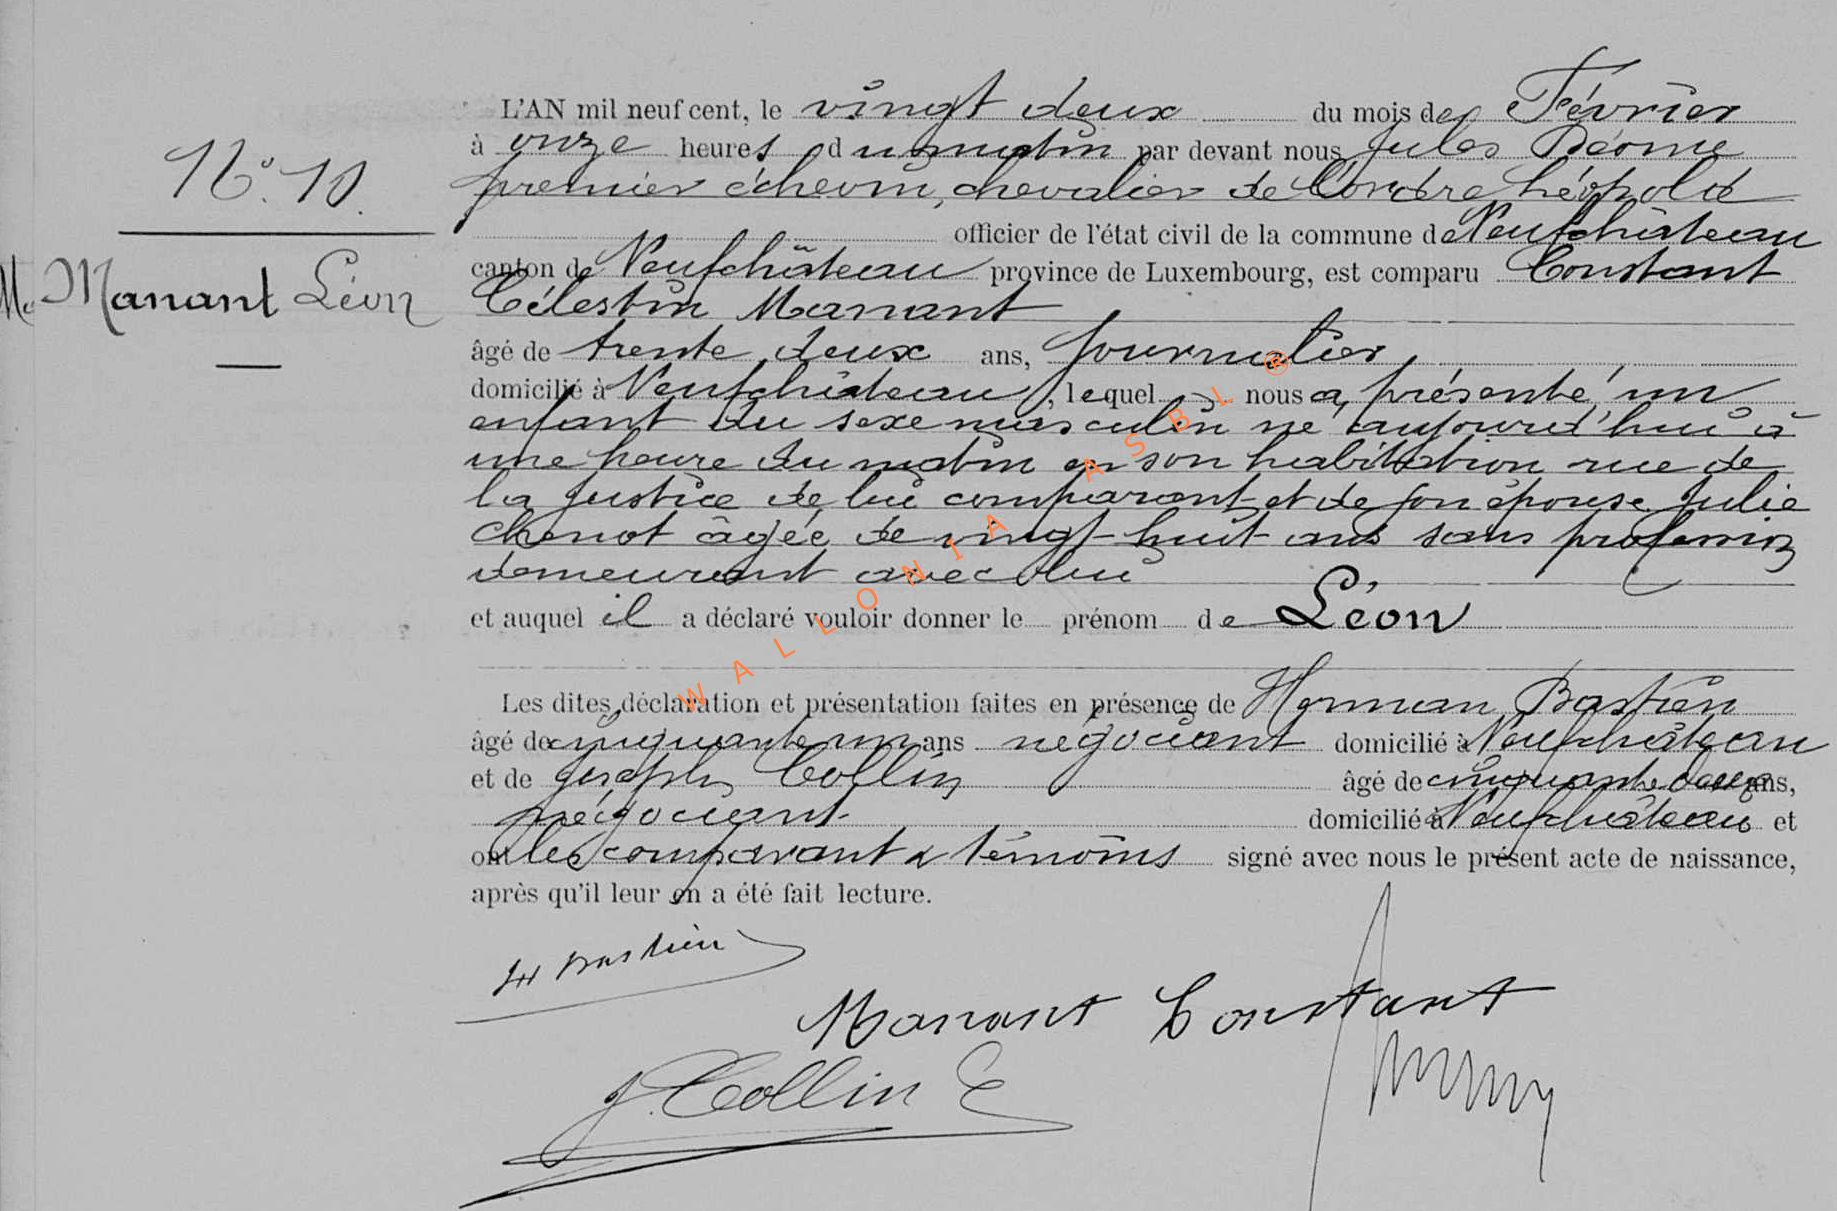 L'AN mil neuf cent, le vingt deux du mois de Février
à onze heures du matin par devant nous Jules
premier échevin, chevalier de l'ordre Léopold
officier de l'état civil de la commune de Neufchâteau
N° 10.
canton de Neufchâteau province de Luxembourg, est comparu Constant
Manant Léon
Célestin Manant
âgé de trente deux ans, journalier,
domicilié à Neufchâteau, lequel nous a présenté un
enfant du sexe masculin né aujourd'hui à
une heure du matin en son habitation rue de
la Justice de lui comparant et de son épouse Julie
Chenot âgée de vingt huit ans sans profession
demeurant avec lui
et auquel il a déclaré vouloir donner le prénom de Léon
Les dites déclaration et présentation faites en présence de Herman Bastien
âgé de cinquante un ans négociant domicilié à Neufchâteau
et de Joseph Collin âgé de cinquante deux ans,
négociant domicilié à Neufchâteau et
ont les comparant & témoins signé avec nous le présent acte de naissance,
après qu'il leur en a été fait lecture.
H Bastien
Manant Constant
J. Collin
WALLONIA ASBL ®